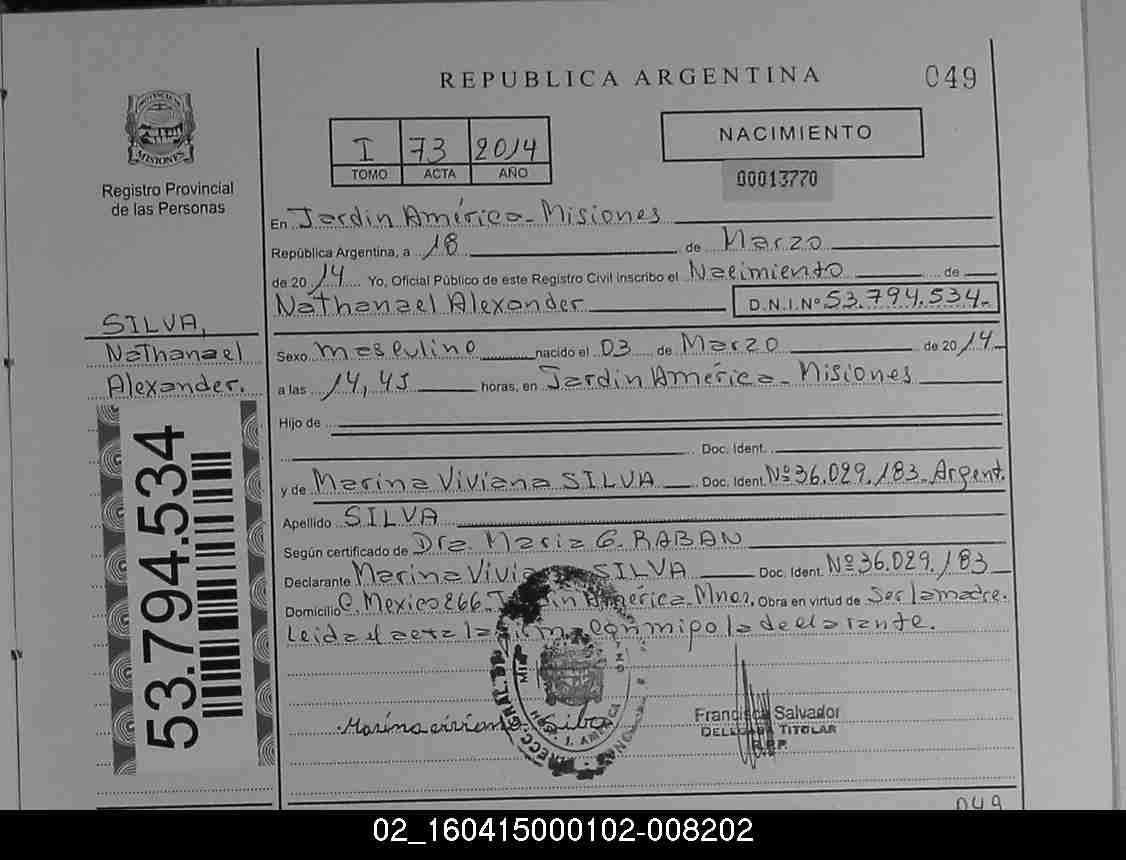 REPUBLICA ARGENTINA
049
MISIONES
Registro Provincial
de las Personas
I 73 2014
TOMO ACTA AÑO
NACIMIENTO
00013770
En Jardin América - Misiones
República Argentina, a 18 de Marzo
de 2014 Yo, Oficial Público de este Registro Civil inscribo el Nacimiento de
Nathanael Alexander D.N.I.Nº 53.794.534.-
SILVA,
Nathanael
Alexander.
53.794.534
Sexo masculino nacido el 03 de Marzo de 2014.-
a las 14,45 horas, en Jardin América - Misiones
Hijo de
Doc. Ident.
y de Marina Viviana SILVA Doc. Ident. Nº 36.029.183 - Argent.
Apellido SILVA
Según certificado de Dra. Maria G. RABAN
Declarante Marina Vivi SILVA Doc. Ident. Nº 36.029.183
Domicilio C. Mexico 266 - Jardin América - Mnes, Obra en virtud de Ser la madre.
Leida el acta la firma conmigo la declarante.
Marina viviana Silva
Francisca Salvador
DELEGADA TITULAR
R.P.P.
049
02_160415000102-008202